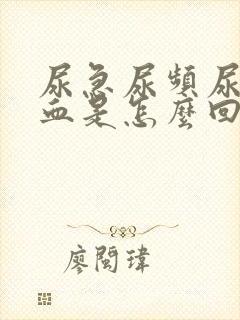 尿急尿頻尿
血是怎麼回
廖閩瑋